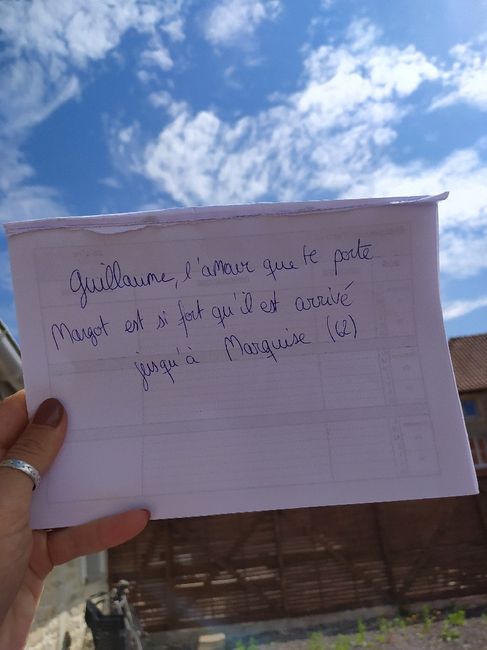 Guillaume, l'amour que te porte
Margot est si fort qu'il est arrivé
jusqu'à Marquise (62)